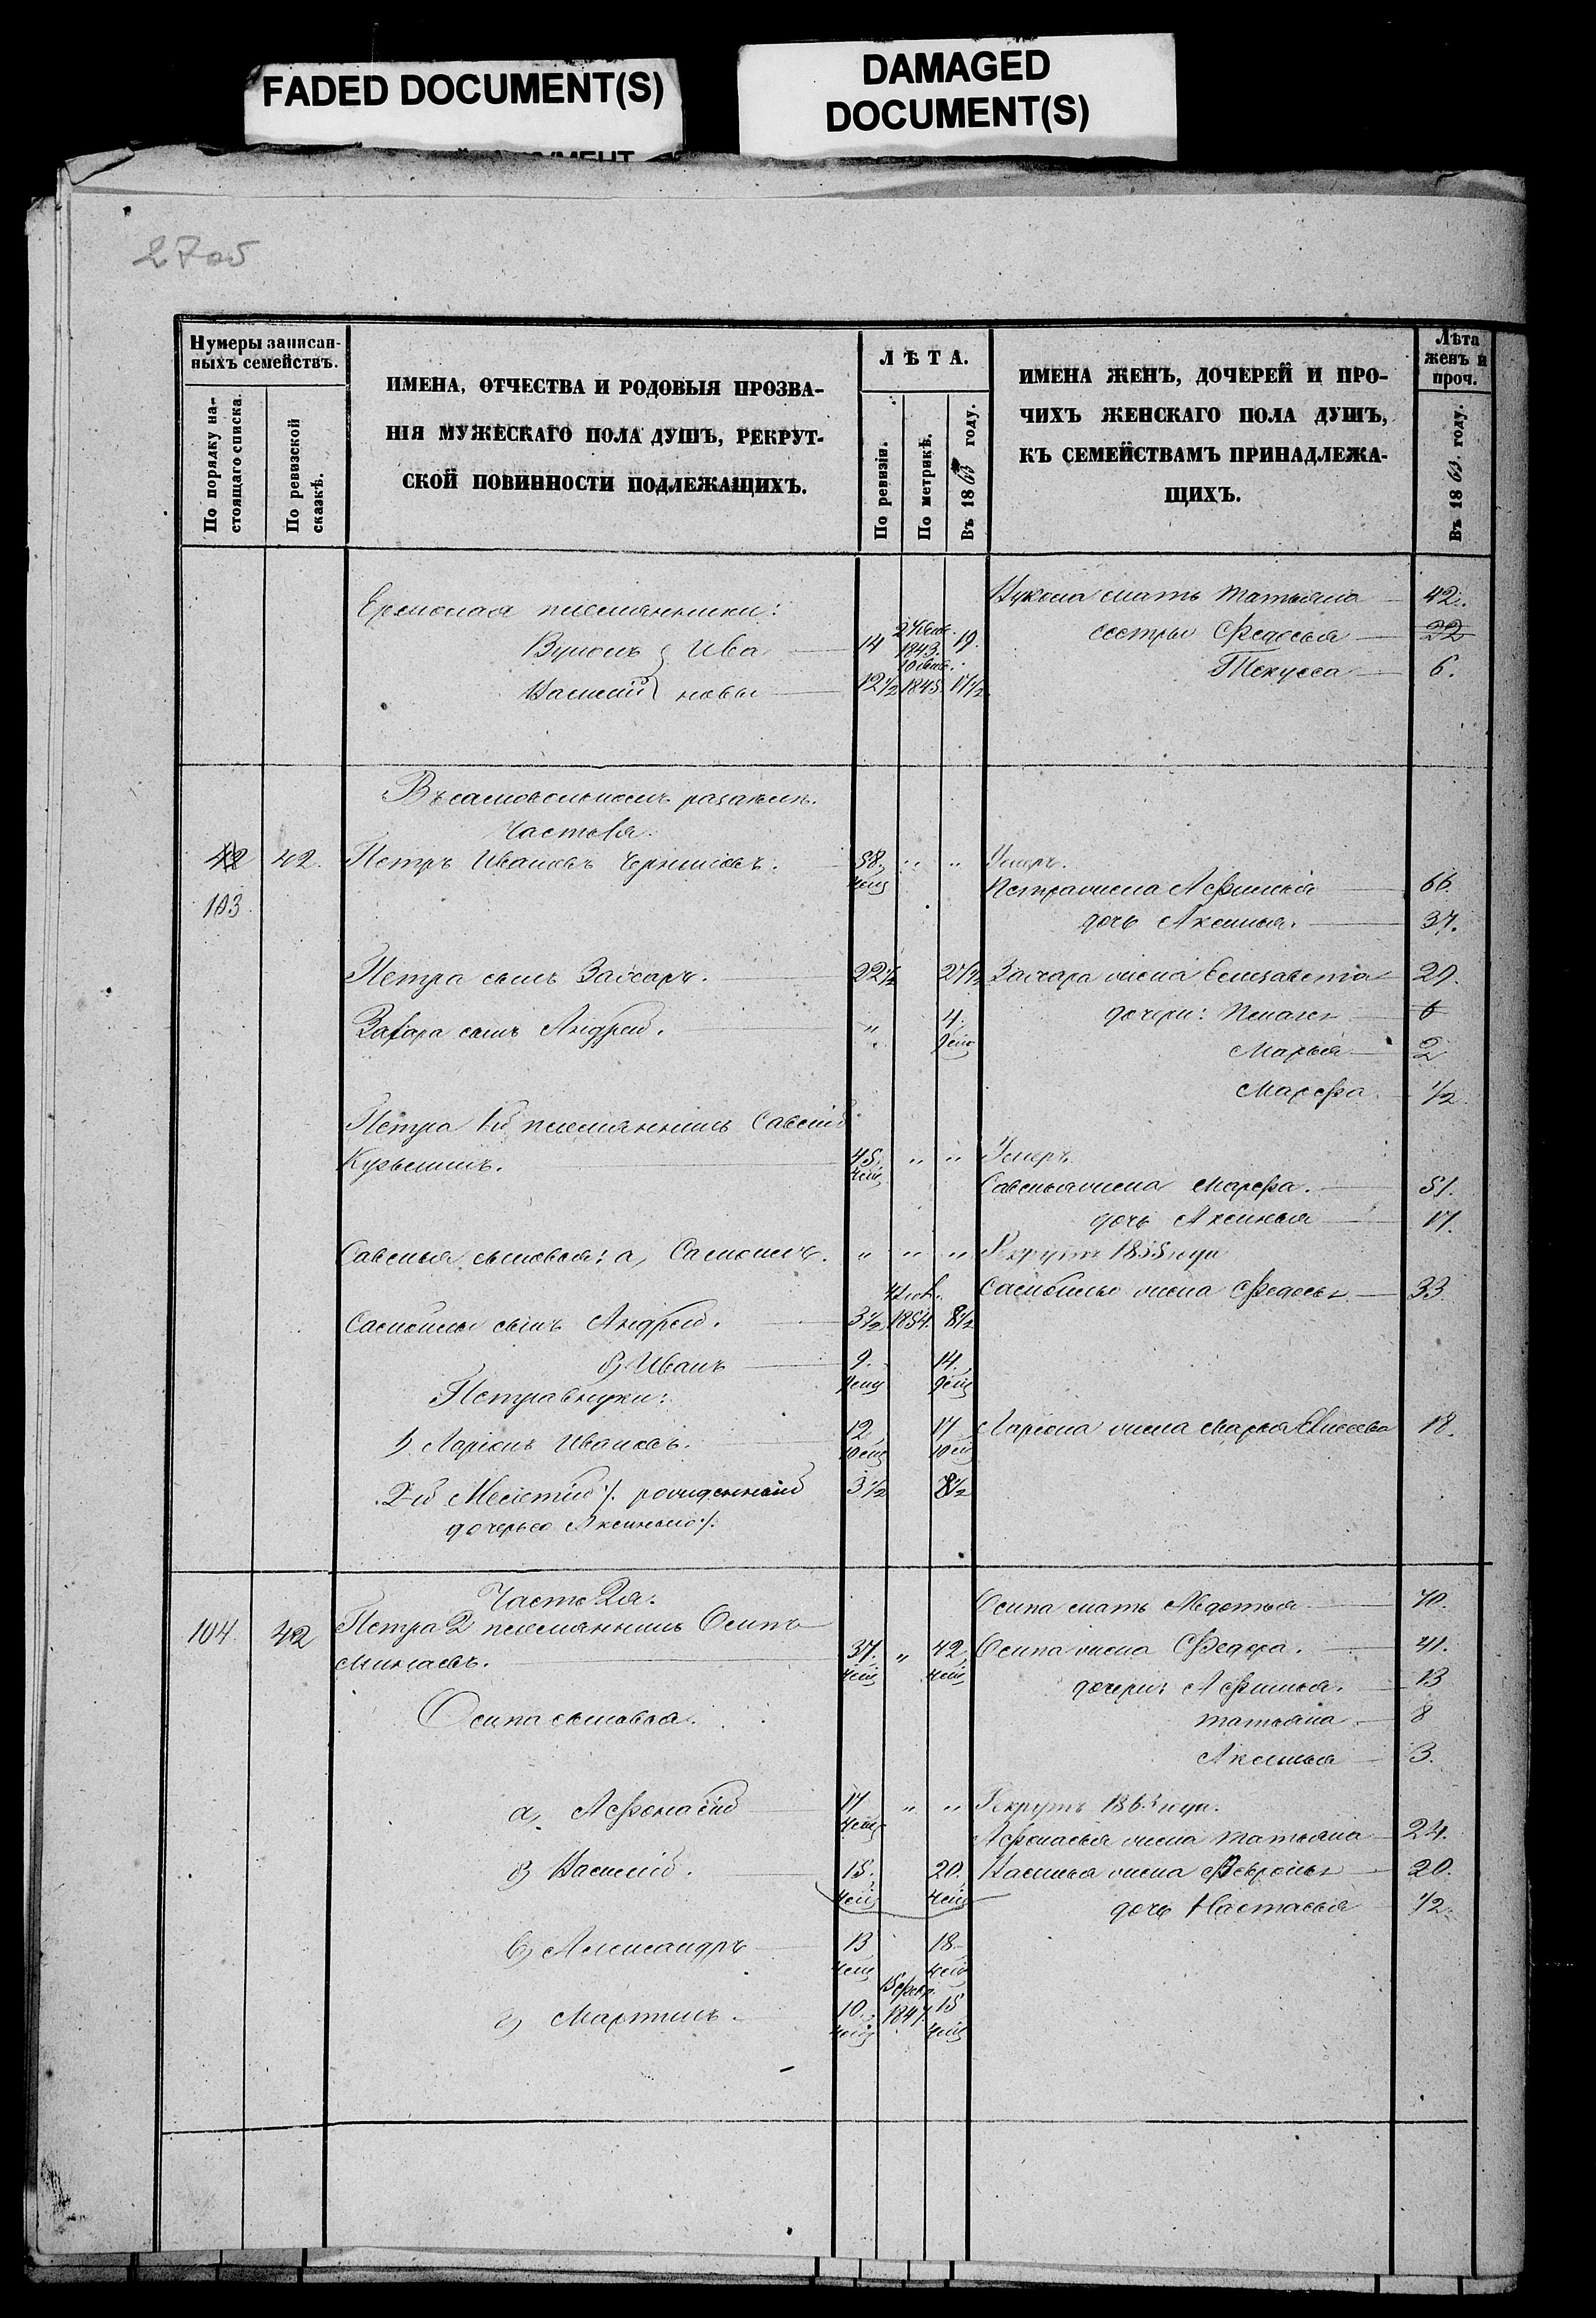 FADED DOCUMENT(S)
DAMAGED
DOCUMENT(S)
27об
Нумеры записан-
ныхъ семействъ.
По порядку на-
стоящаго списка.
По ревизской
сказкѣ.
ИМЕНА, ОТЧЕСТВА И РОДОВЫЯ ПРОЗВА-
НІЯ МУЖЕСКАГО ПОЛА ДУШЪ, РЕКРУТ-
СКОЙ ПОВИННОСТИ ПОДЛЕЖАЩИХЪ.
ЛѢТА.
По ревизіи.
По метрикѣ.
Въ 1863 году.
ИМЕНА ЖЕНЪ, ДОЧЕРЕЙ И ПРО-
ЧИХЪ ЖЕНСКАГО ПОЛА ДУШЪ,
КЪ СЕМЕЙСТВАМЪ ПРИНАДЛЕЖА-
ЩИХЪ.
Лѣта
женъ и
проч.
Въ 1863 году.
Ермолая племянники:
Вуколъ } Ива 14 1843. 19.
Василій } новы 12½ 1845. 17½
Вукола мать Татьяна 42.
сестры Федосья 22
Текусса 6.
Въ самовольномъ раздѣлѣ.
Часть 1я.
42 42. Петръ Ивановъ 58. " " Умеръ.
103
Петра жена Афимья 66.
дочь Аксинья. 37.
Петра сынъ Захаръ. 22½ 27½ Захара жена Елизавета 29.
Захара сынъ Андрей. " 4. дочери: Пелагея 6
Марья 2
Марфа ½
Петра 1й племянникъ Савелій
Кузьминъ. 45. " " Умеръ.
Савелья жена Марфа. 51.
дочь Аксинья 17.
Савелья сыновья: а, Самойлъ. " " " Рекрутъ 1855 года
Самойлы жена Федосья 33
Самойлы сынъ Андрей. 3½ 1854. 8½
б) Иванъ 9. 14.
Петра внуки:
1. Ларіонъ Ивановъ. 12 17 Ларіона жена Марья 18.
2-й Мелетій /. рожденный 3½ 8½
дочерью Аксиньею./.
Часть 2я.
104. 42 Петра 2 племянникъ Осипъ
Минаевъ. 37. " 42
Осипа мать Авдотья 70.
Осипа жена Федора. 41.
дочери: Афимья. 13
Татьяна. 8
Аксинья 3.
Осипа сыновья.
а, Афонасій 17 " " Рекрутъ 1863 года.
Афонасья жена Татьяна 24.
б) Василій. 15. 20. Василья жена Февронья 20.
дочь Настасья ½
в) Александръ 13 18
г) Мартинъ. 10. 1847. 15